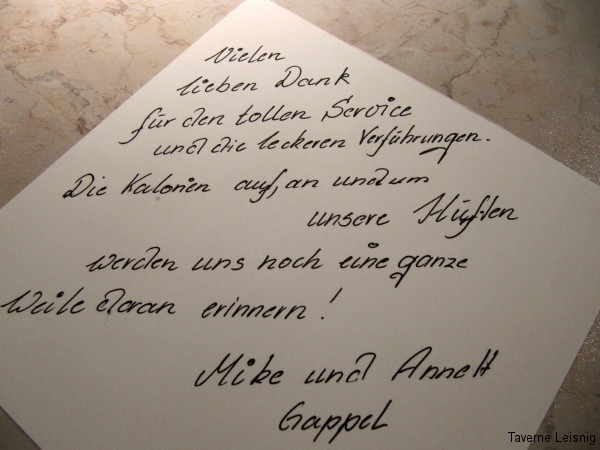 Vielen
lieben Dank
für den tollen Service
und die leckeren Verführungen.
Die Kalorien auf, an und um
unsere Hüften
werden uns noch eine ganze
Weile daran erinnern!
Mike und Annett
Gappel
Taverne Leisnig